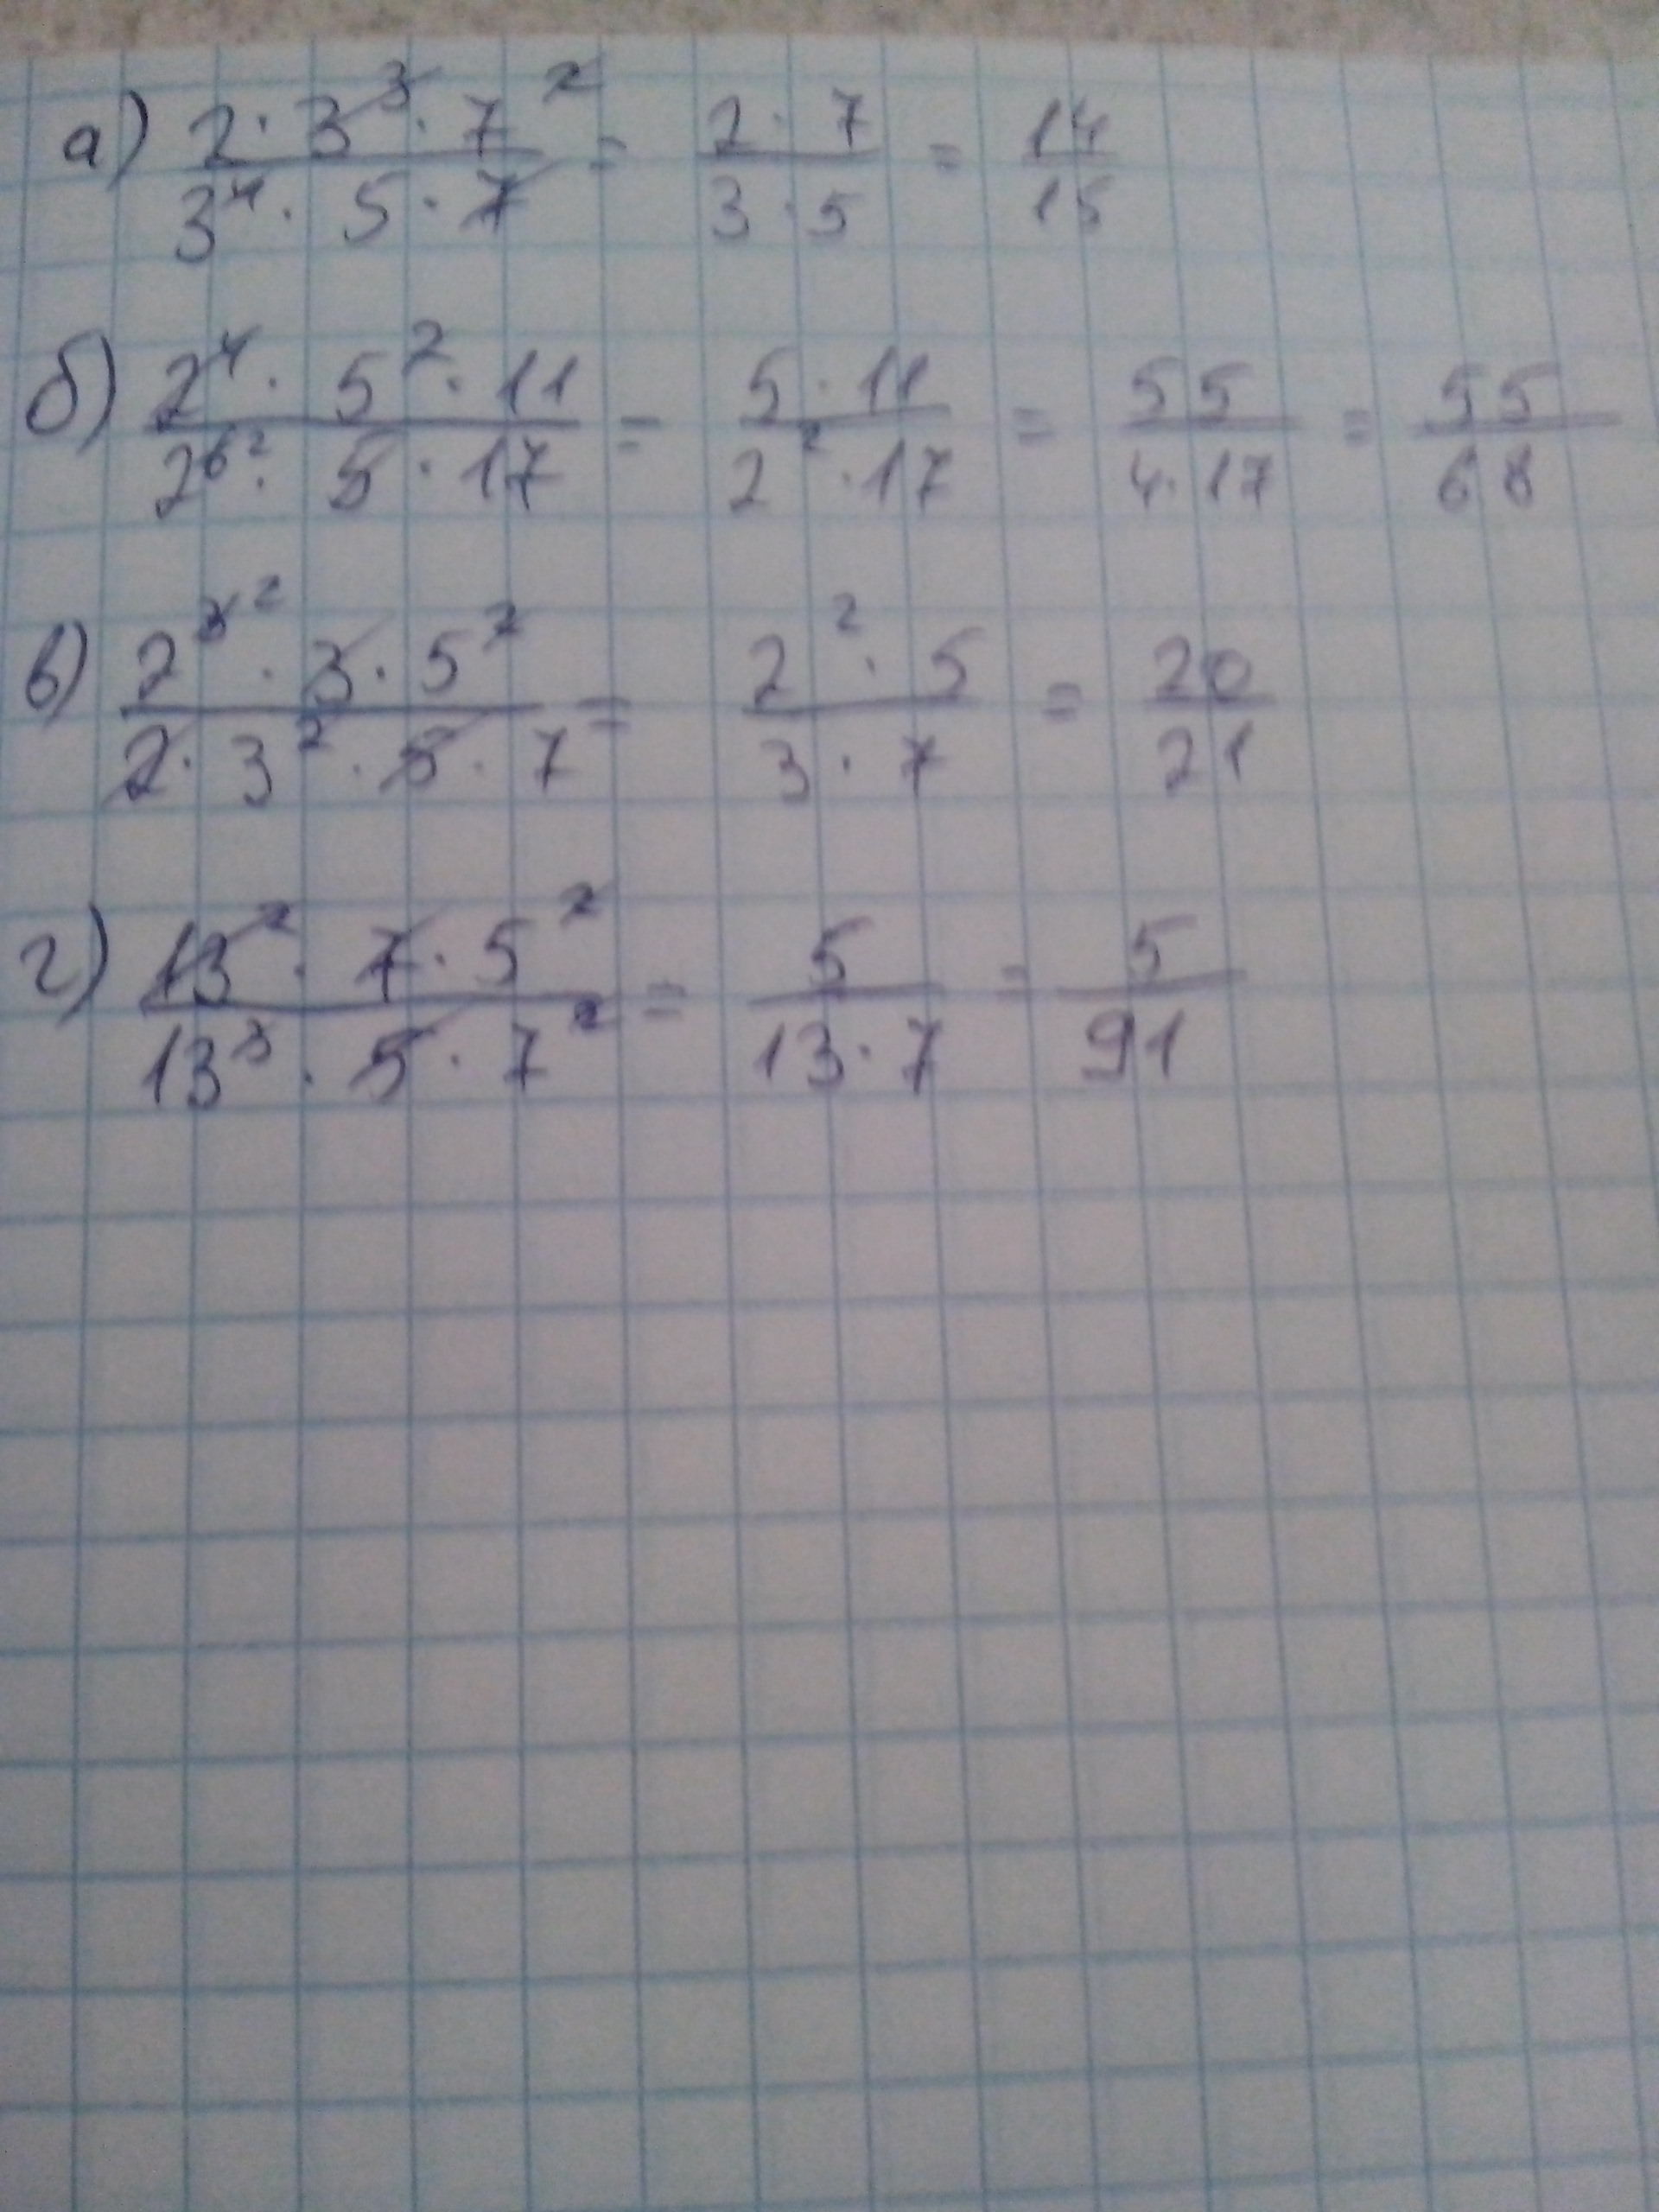 а) (2 · 3³ · 7²)/(3⁴ · 5 · 7) = (2 · 7)/(3 · 5) = 14/15
б) (2⁴ · 5² · 11)/(2⁶ ² · 5 · 17) = (5 · 11)/(2² · 17) = 55/(4 · 17) = 55/68
в) (2³ ² · 3 · 5²)/(2 · 3² · 5 · 7) = (2² · 5)/(3 · 7) = 20/21
г) (13² · 7 · 5²)/(13³ · 5 · 7²) = 5/(13 · 7) = 5/91